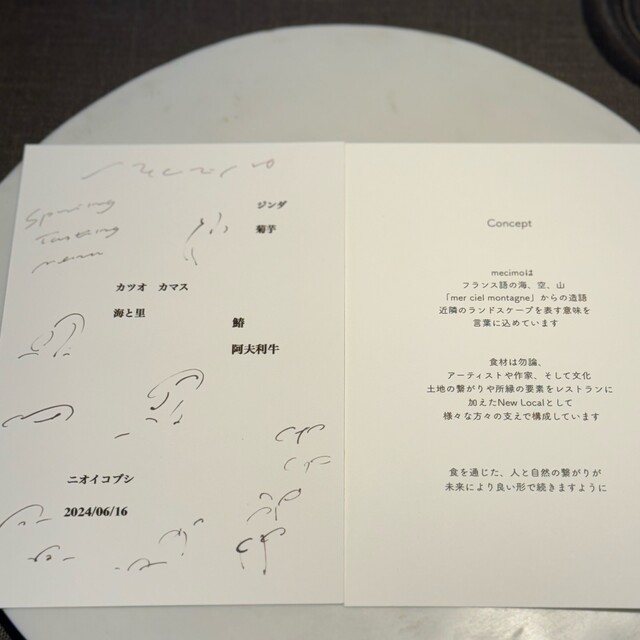 mecimo
Spring
Tasting
menu
ジンダ
菊芋
カツオ カマス
海と里
鰆
阿夫利牛
ニオイコブシ
2024/06/16
Concept
mecimoは
フランス語の海、空、山
「mer ciel montagne」からの造語
近隣のランドスケープを表す意味を
言葉に込めています
食材は勿論、
アーティストや作家、そして文化
土地の繋がりや所縁の要素をレストランに
加えたNew Localとして
様々な方々の支えで構成しています
食を通じた、人と自然の繋がりが
未来により良い形で続きますように